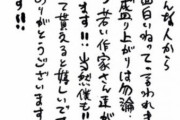 んな人から
面白いねって言われま
盛り上がりは勿論、
若い作家さん達が
ます!!当然僕も!!
って貰えると嬉しいで
ありがとうございます!!